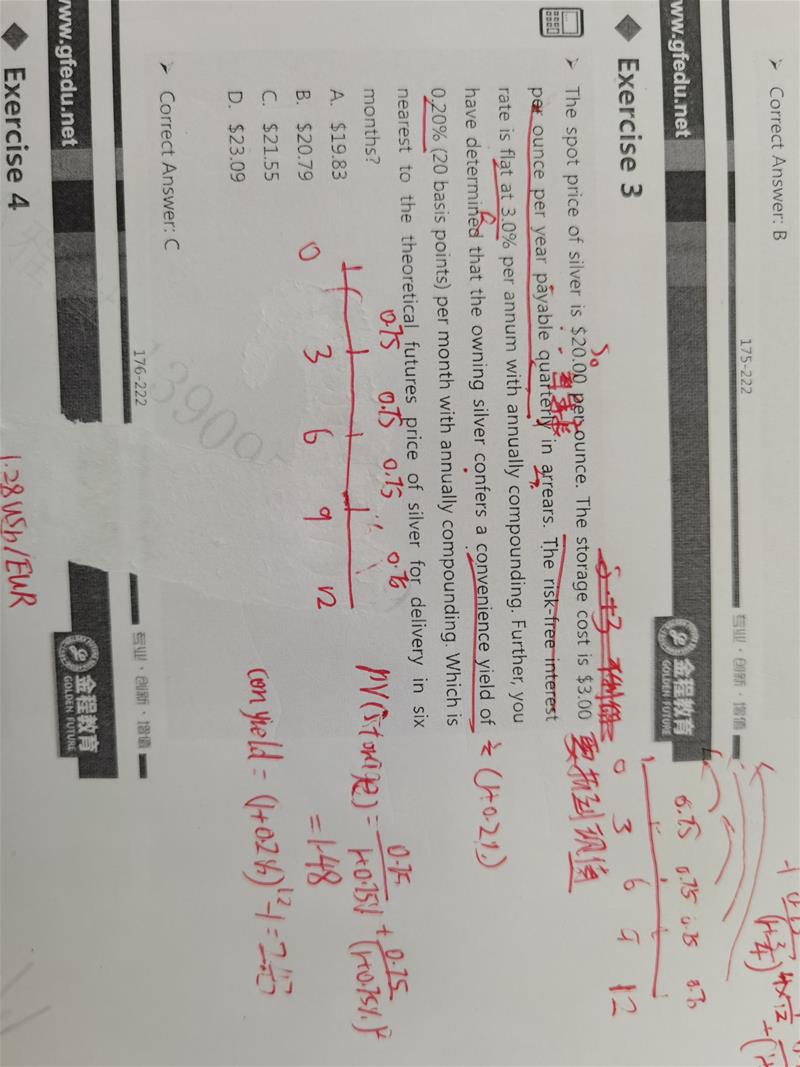 ➢ Correct Answer: B
175-222
www.gfedu.net
专业·创新·增值
金程教育
GOLDEN FUTURE
◆ Exercise 3
➢ The spot price of silver is $20.00 per ounce. The storage cost is $3.00
per ounce per year payable quarterly in arrears. The risk-free interest
rate is flat at 3.0% per annum with annually compounding. Further, you
have determined that the owning silver confers a convenience yield of
0.20% (20 basis points) per month with annually compounding. Which is
nearest to the theoretical futures price of silver for delivery in six
months?
A. $19.83
B. $20.79
C. $21.55
D. $23.09
➢ Correct Answer: C
S0
要折到现值
0 3 6 9 12
0.75 0.75 0.75 0.75
(1+0.2%)
0.75 0.75 0.75 0.75
0 3 6 9 12
PV(storage) = 0.75/1+0.75% + 0.75/(1+0.75%)²
= 1.48
con yield = (1+0.2%)^12 - 1 =
176-222
专业·创新·增值
www.gfedu.net
金程教育
GOLDEN FUTURE
◆ Exercise 4
1.28USD/EUR